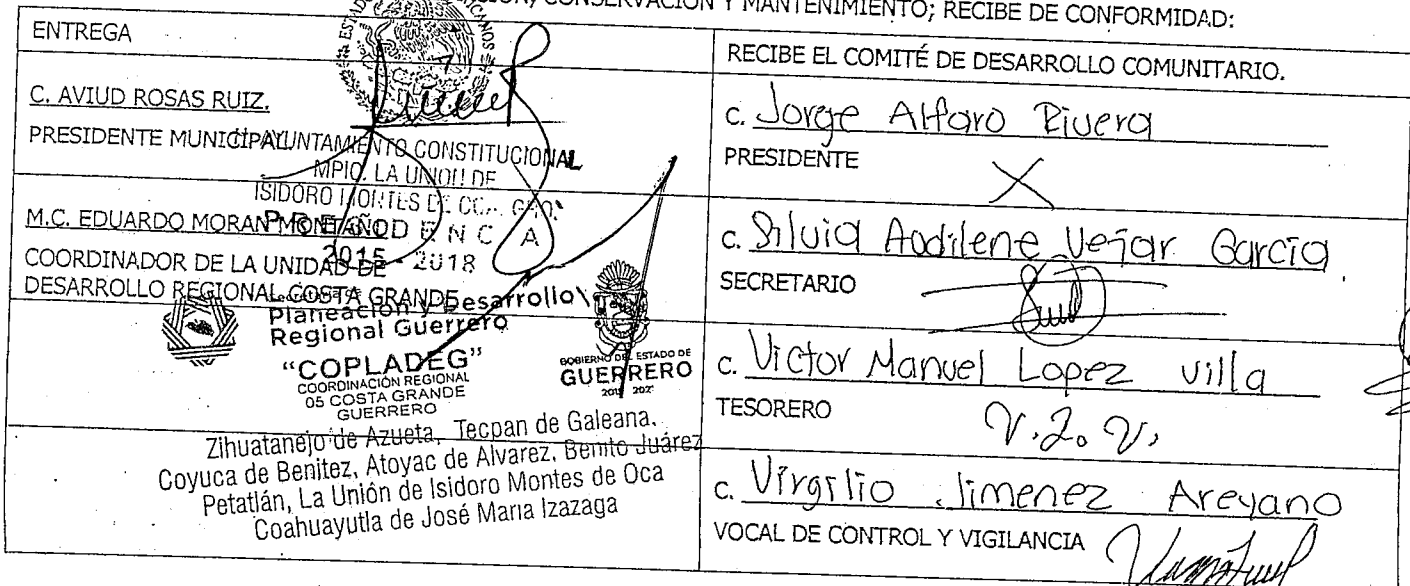 CONSERVACIÓN Y MANTENIMIENTO; RECIBE DE CONFORMIDAD:
ENTREGA
C. AVIUD ROSAS RUIZ.
PRESIDENTE MUNICIPAL
H. AYUNTAMIENTO CONSTITUCIONAL
MPIO. LA UNION DE
ISIDORO MONTES DE OCA, GRO.
PRESIDENCIA
2015 - 2018
M.C. EDUARDO MORAN MONTAÑO
COORDINADOR DE LA UNIDAD DE
DESARROLLO REGIONAL COSTA GRANDE
Planeación y Desarrollo
Regional Guerrero
"COPLADEG"
COORDINACIÓN REGIONAL
05 COSTA GRANDE
GUERRERO
GOBIERNO DEL ESTADO DE
GUERRERO
Zihuatanejo de Azueta, Tecpan de Galeana.
Coyuca de Benitez, Atoyac de Alvarez, Benito Juárez
Petatlán, La Unión de Isidoro Montes de Oca
Coahuayutla de José Maria Izazaga
RECIBE EL COMITÉ DE DESARROLLO COMUNITARIO.
C. Jorge Alfaro Rivera
PRESIDENTE
X
C. Silvia Aodilene Vejar Garcia
SECRETARIO
C. Victor Manuel Lopez Villa
TESORERO
V.L.V.
C. Virgilio Jimenez Areyano
VOCAL DE CONTROL Y VIGILANCIA